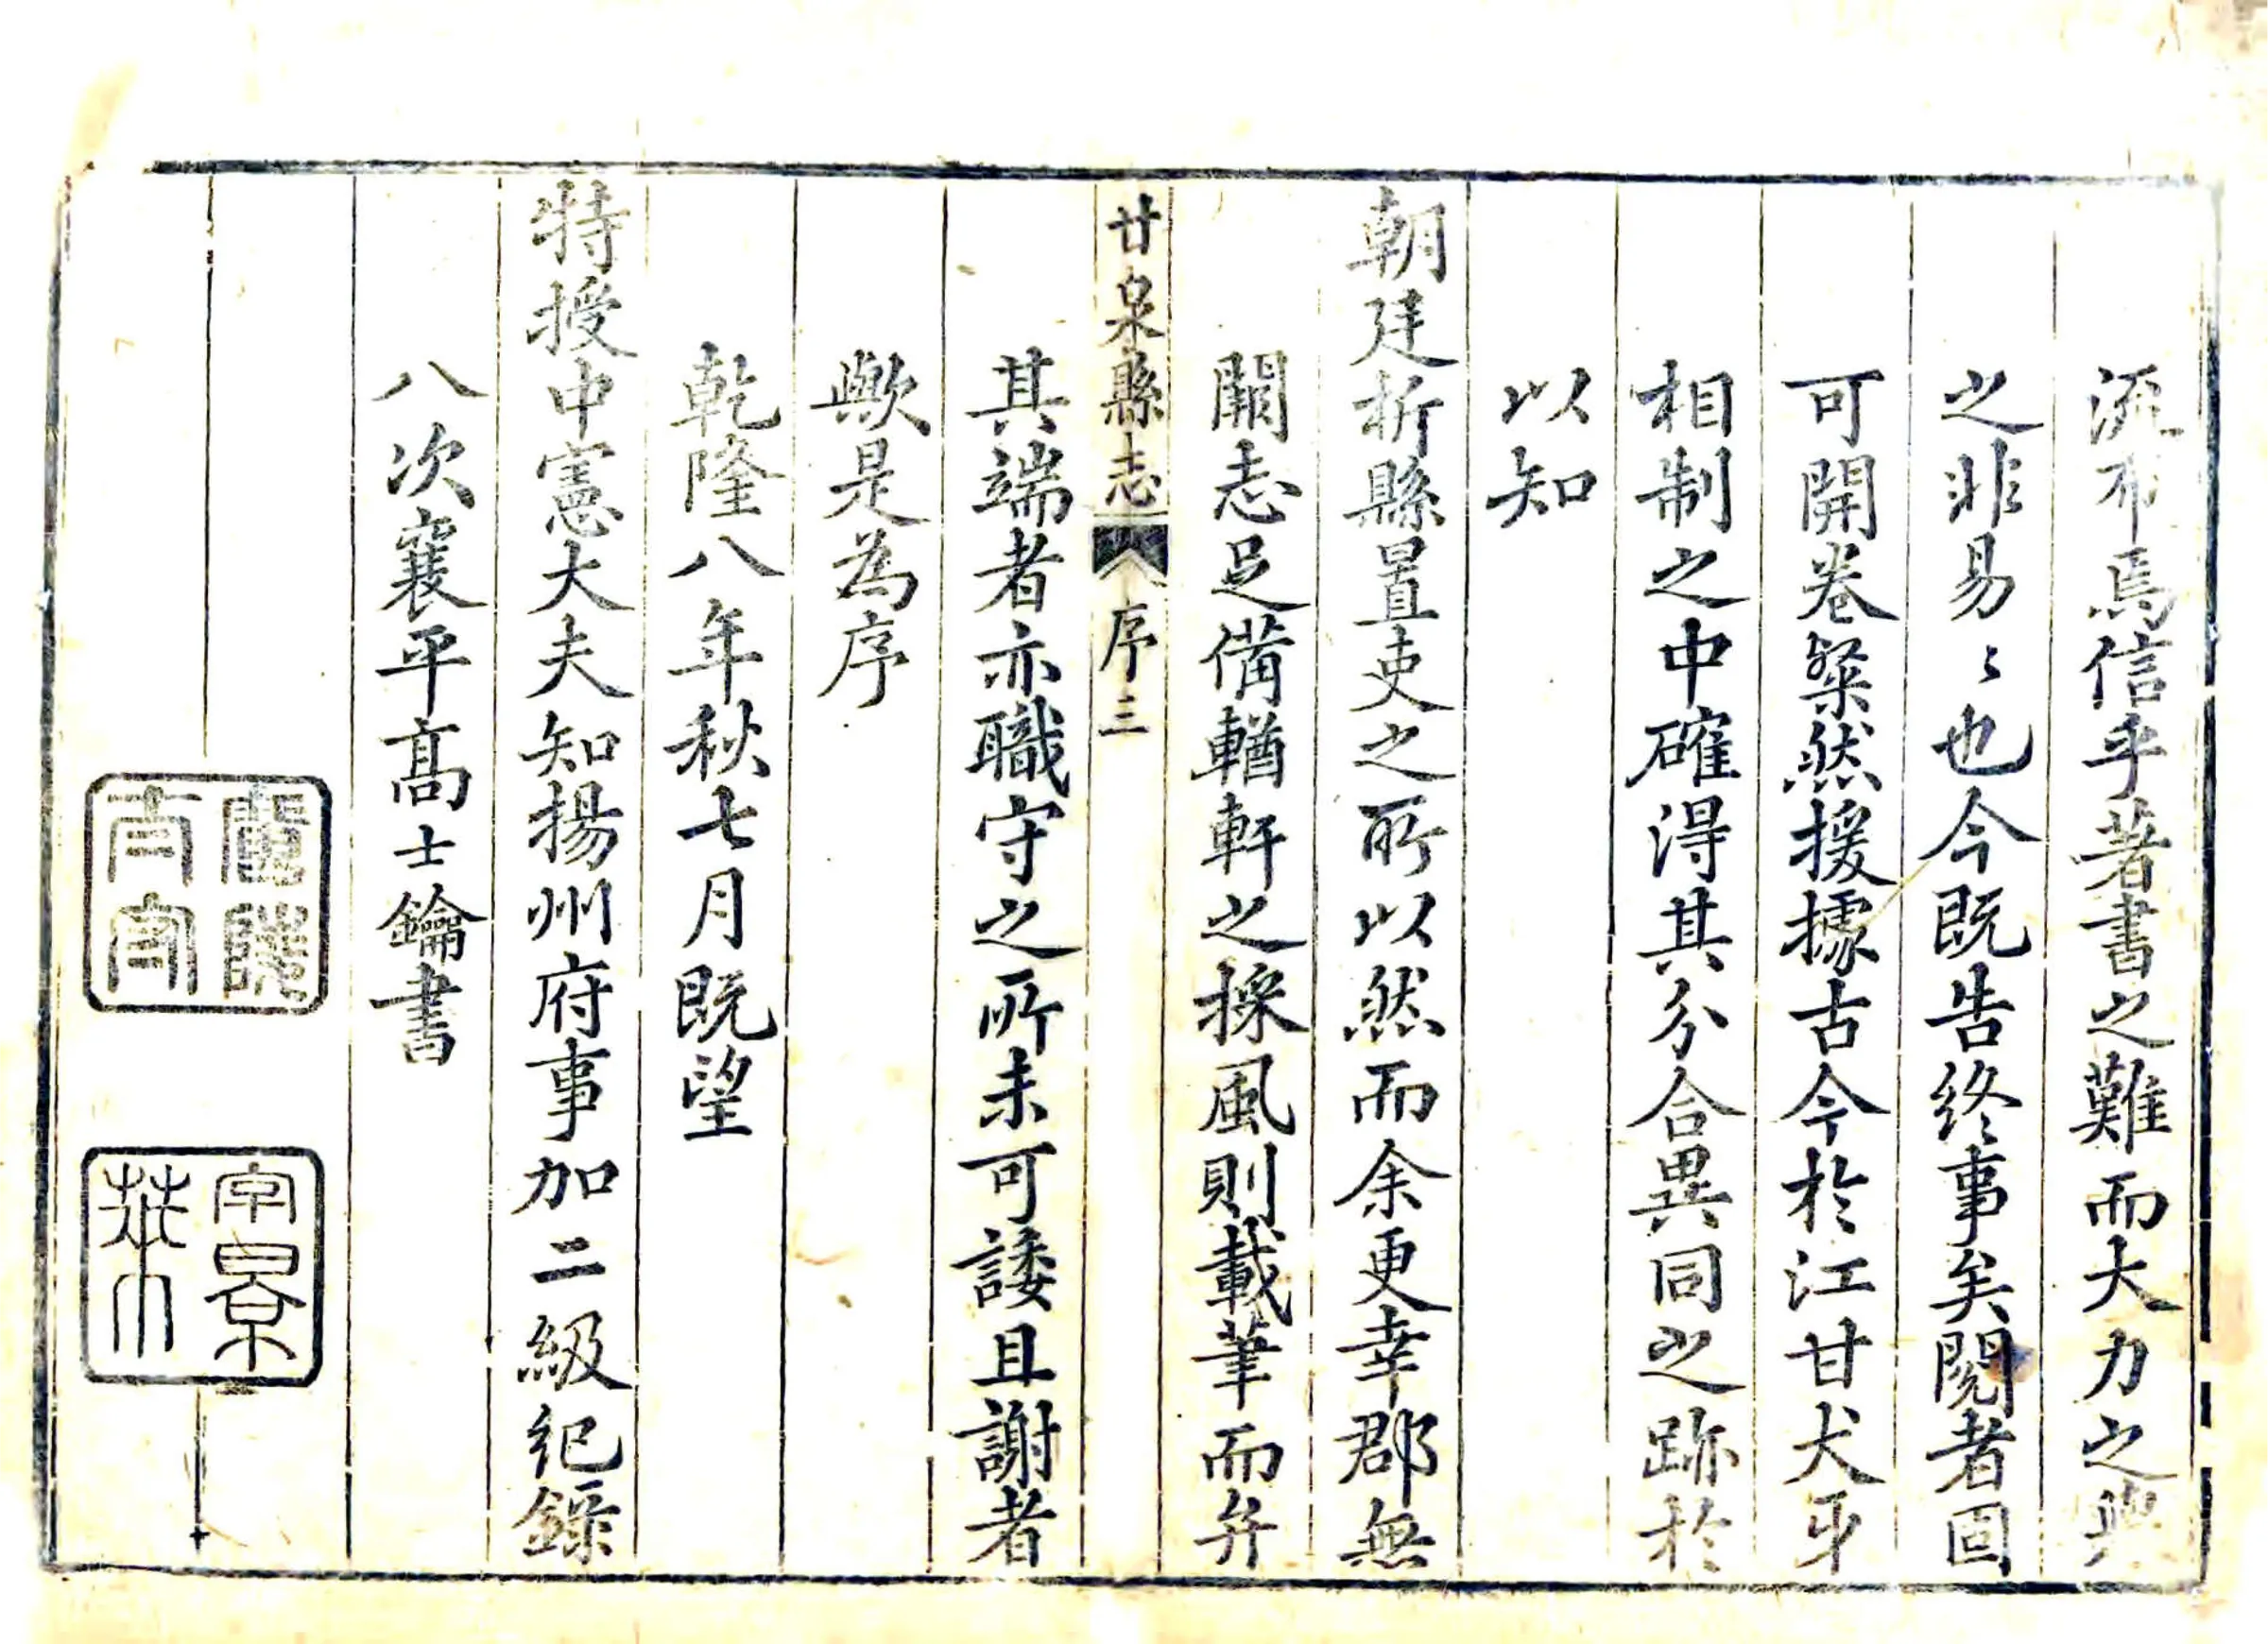 流布焉信乎著書之難而大力之與
之非易〻也今既告終事矣閱者固
可開卷粲然援據古今於江甘犬牙
相制之中確得其分合異同之跡於
以知
朝廷析縣置吏之所以然而余更幸郡無
闕志足備輶軒之採風則載筆而弁
甘泉縣志 序 三
其端者亦職守之所未可諉且謝者
歟是為序
乾隆八年秋七月既望
特授中憲大夫知揚州府事加二級紀錄
八次襄平高士鑰書
字景萊